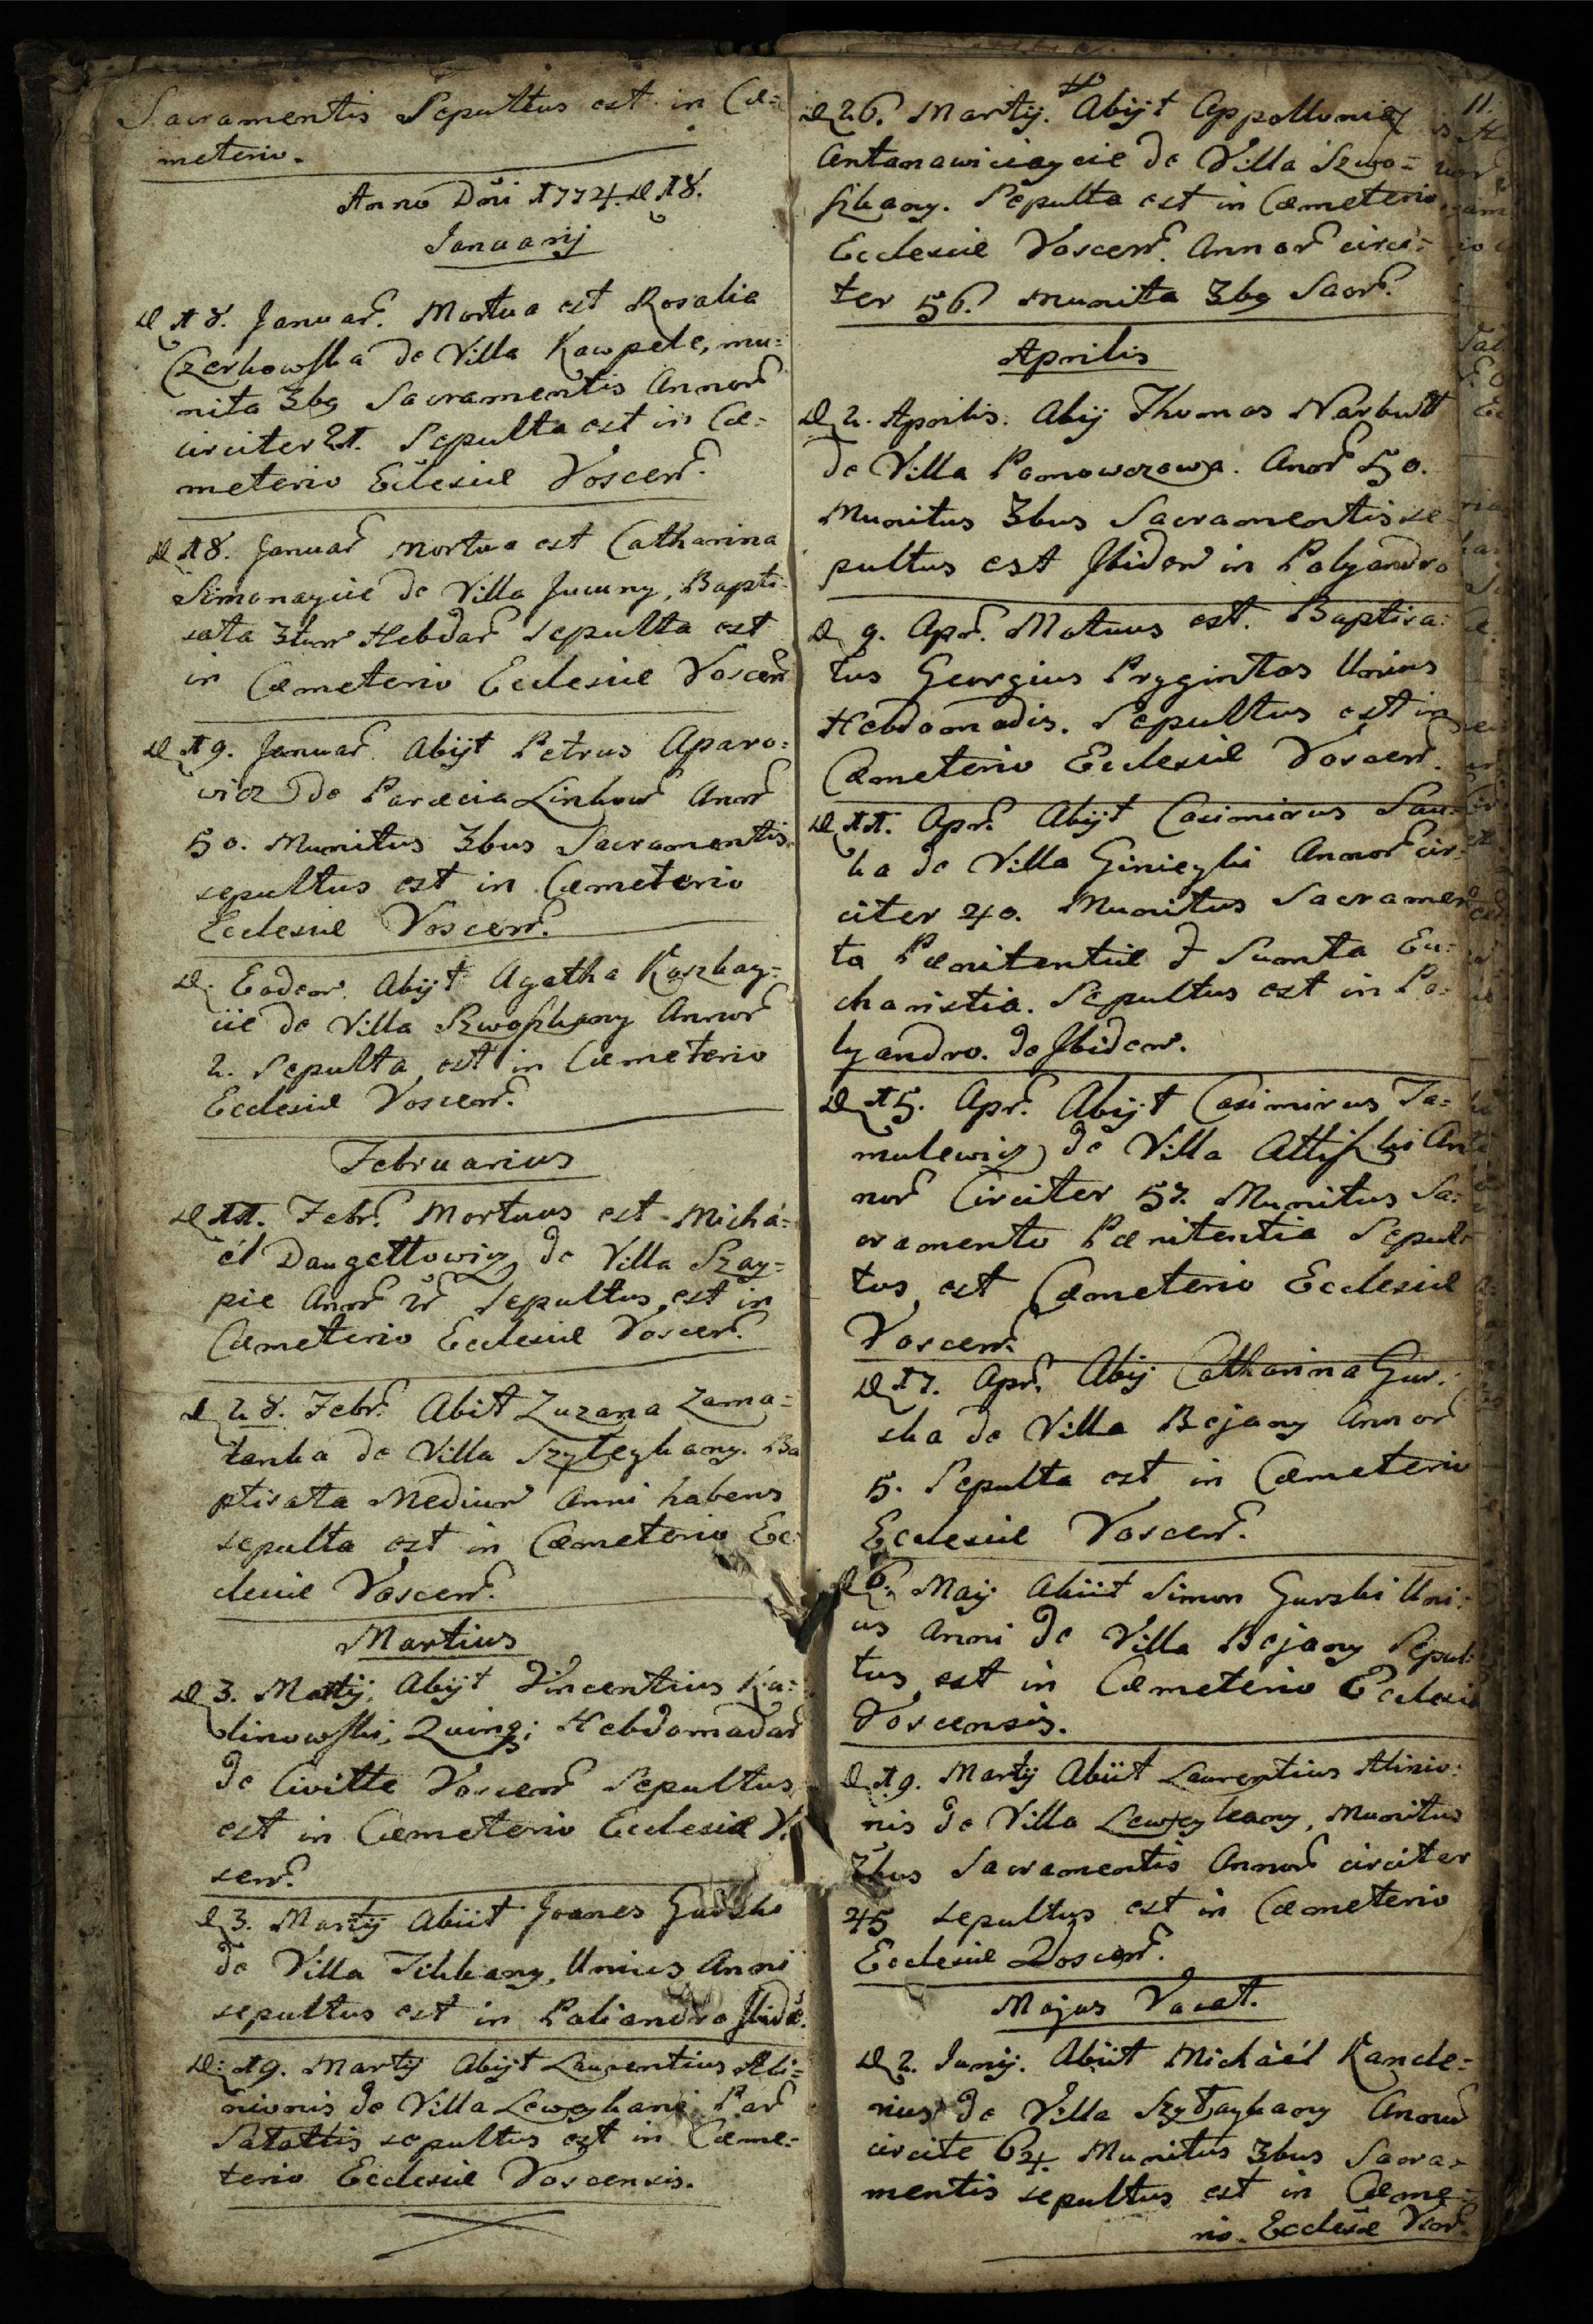 Sacramentis Sepultus est in Cæ=
meterio.
Anno Dñi 1774. D 18.
Januarij
D 18. Januar. Mortua est Rosalia
Czerkowska de Villa Kawpele, mu=
nita 3bg Sacramentis Annor
circiter 21. Sepulta est in Cæ=
meterio Eclesiæ Voscen.
D 18. Januar mortua est Catharina
Simonaycie de Villa Jucuny, Bapti=
sata 3ium Hebdar sepulta est
in Cæmeterio Ecclesiæ Voscen
D 19. Januar. Abijt Petrus Aparo=
wicz de Paræcia Linkow Anor
50. Munitus 3bus Sacramentis
sepultus est in Cæmeterio
Ecclesiæ Voscen.
D. Eodem. Abijt Agatha Koszkay=
cie de Villa Szwoszkany Annor
2. Sepulta est in Cæmeterio
Ecclesiæ Voscen.
Februarius
D 11. Febr. Mortuus est Michá=
él Daugettowicz de Villa Szay=
pie Anor Sepultus est in
Cæmeterio Ecclesiæ Voscen.
D 28. Febr. Abit Zuzana Zama=
tanka de Villa Szyleykany. Ba
ptisata Medium Anni habens
sepulta est in Cæmeterio Ec=
clesiæ Voscen.
Martius
D 3. Martij. Abijt Vincentius Ka=
linowski, Quinq; Hebdomadar
de Civitte Voscen Sepultus
est in Cæmeterio Ecclesiæ V.
sen.
D 3. Martij Abiit Joanes Gursk
de Villa Tilkany, Unius Anni
sepultus est in Poliandro Ibidē.
D: 19. Martij Abijt Laurentius Ali=
nionis de Villa Leweykani Par
Satattis sepultus est in Cæme=
terio Ecclesiæ Voscensis.
11.
D 26. Martij. Abijt Appollonia
Antanawiciaycie de Villa Szwo=
szkany. Sepulta est in Cæmeterio
Ecclesiæ Voscen. Annor circi=
ter 56. munita 3bg Sacr.
Aprilis
D 2. Aprilis. Abij Thomas Narbutt
de Villa Ponowczowa. Anor 50.
Munitus 3bus Sacramentis se
pultus est Ibidem in Polyandro
D 9. Apr. Motuus est. Baptisa=
tus Georgius Prygintas Unius
Hebdomadis. Sepultus est in
Cæmeterio Ecclesiæ Voscen.
D 11. Apr. Abijt Casimirus Sau=
ka de Villa Ginieyki Annor cir=
citer 40. Munitus Sacramen
to Pænitentiæ & Sumta Eu=
charistia. Sepultus est in Po=
lyandro. de Ibidem.
D 15. Apr. Abijt Casimirus Ja=
mulewicz de Villa Attiszki An
nor Circiter 57. Munitus Sa=
cramento Pænitentia Sepul=
tus est Cæmeterio Ecclesiæ
Voscen.
D 17. Apr. Abij Catharina Gur=
ska de Villa Bejany Annor
5. Sepulta est in Cæmeterio
Ecclesiæ Voscen.
D 6. Maij Abiit Simon Gurski Uni=
us Anni de Villa Bejany Sepul=
tus est in Cæmeterio Ecclesiæ
Voscensis.
D 19. Martij Abiit Laurentius Alinio=
nis de Villa Leweykany, Munitus
3bus Sacramentis Annor circiter
45 sepultus est in Cæmeterio
Ecclesiæ Voscen.
Majus Vacat.
D 2. Junij. Abiit Michàél Kancle=
rius de Villa Szyłaykany Annor
circite 64. Munitus 3bus Sacra=
mentis sepultus est in Cæme=
rio. Ecclesiæ Vscn.